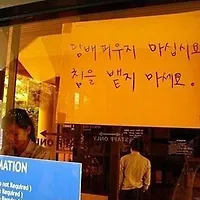 담배 피우지 마십시요
침을 뱉지 마세요.
STAFF ONLY
MATION
not Required )
Required )